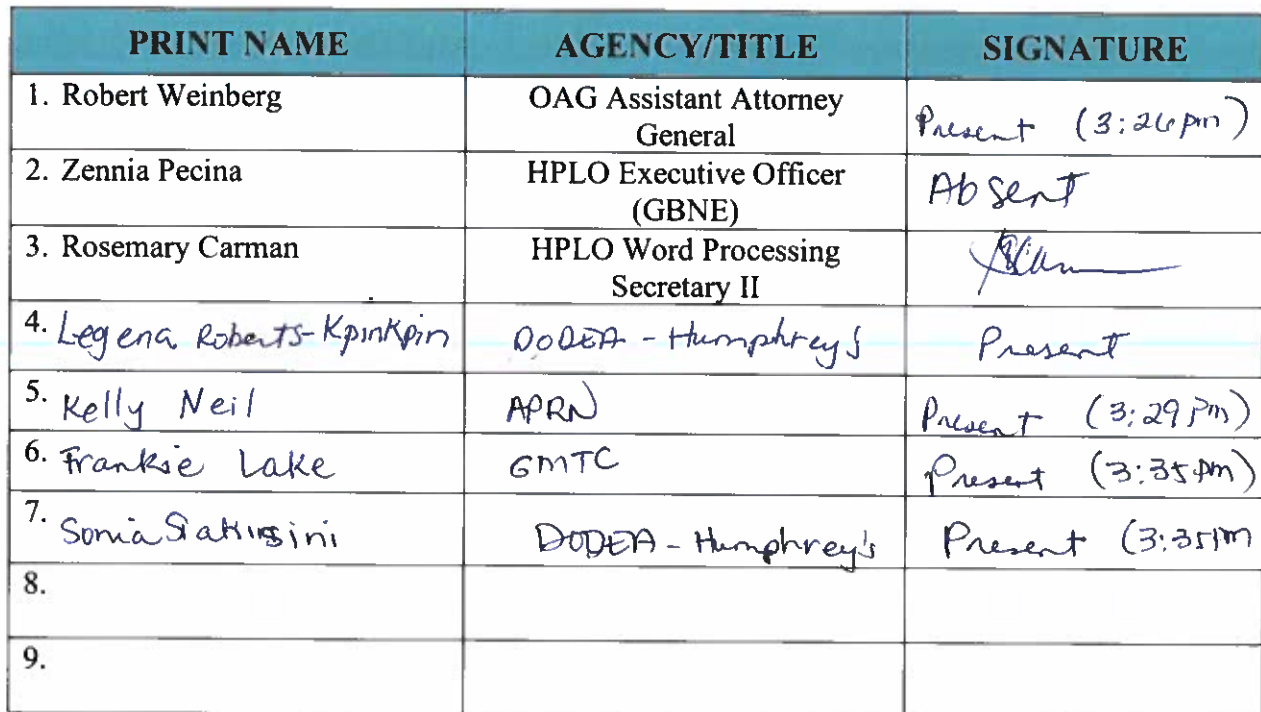 PRINT NAME AGENCY/TITLE SIGNATURE
1. Robert Weinberg OAG Assistant Attorney General Present (3:26pm)
2. Zennia Pecina HPLO Executive Officer (GBNE) Absent
3. Rosemary Carman HPLO Word Processing Secretary II
4. Legena Roberts-KpinKpin DoDEA - Humphreys Present
5. Kelly Neil APRN Present (3:29pm)
6. Frankie Lake GMTC Present (3:35pm)
7. Sonia DODEA - Humphrey's Present (3:35pm
8.
9.